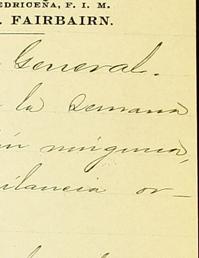 EDRICEÑA, F. I. M.
. FAIRBAIRN.
General.
la Semana
ninguna,
ilancia or-